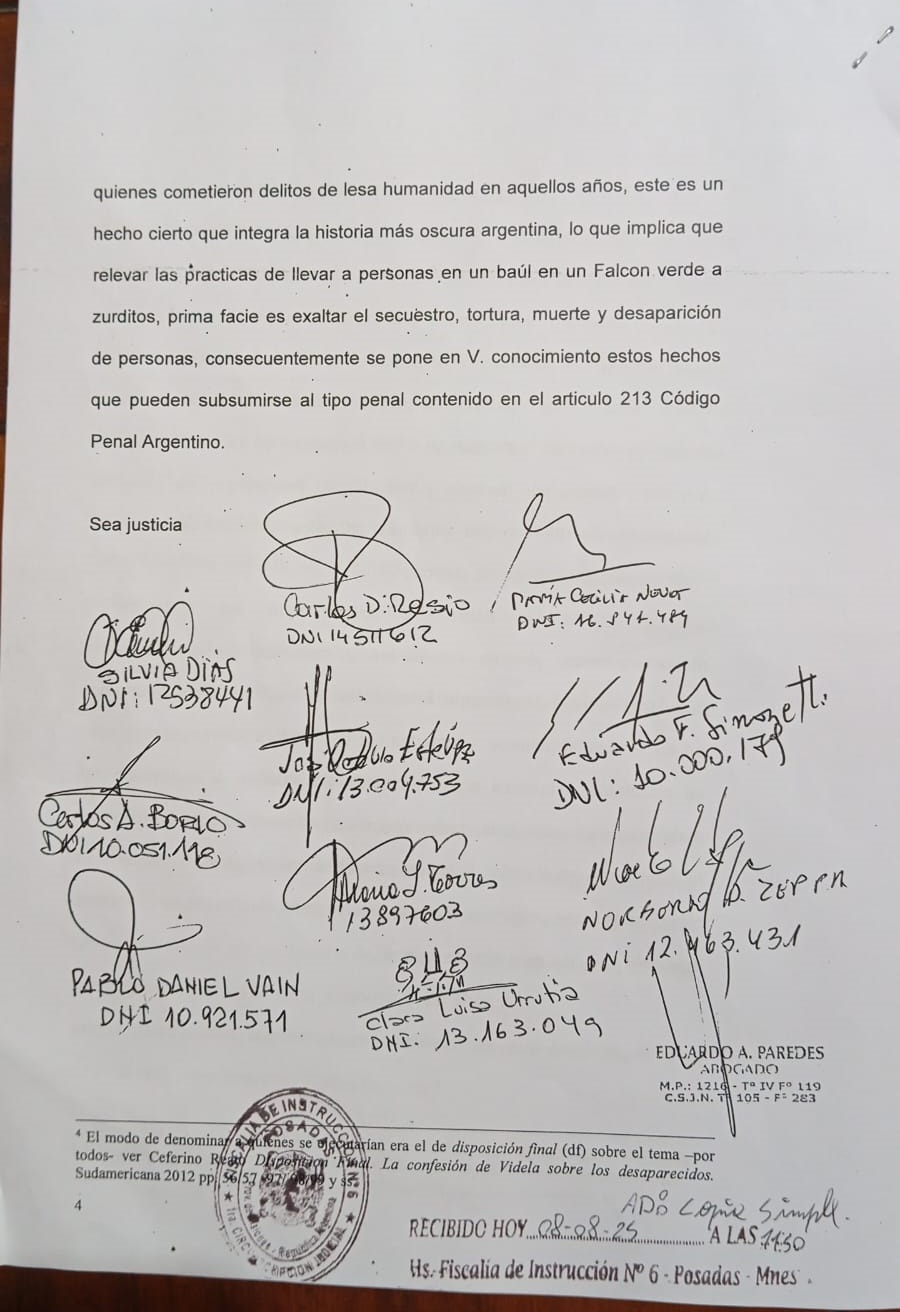 quienes cometieron delitos de lesa humanidad en aquellos años, este es un
hecho cierto que integra la historia más oscura argentina, lo que implica que
relevar las practicas de llevar a personas en un baúl en un Falcon verde a
zurditos, prima facie es exaltar el secuestro, tortura, muerte y desaparición
de personas, consecuentemente se pone en V. conocimiento estos hechos
que pueden subsumirse al tipo penal contenido en el articulo 213 Código
Penal Argentino.
Sea justicia
Carlos Di Resio
DNI 14511612
MARÍA Cecilia
DNI: 16.841.489
SILVIA DIAS
DNI: 12538441
Estévez
DNI: 13.004.753
Eduardo F. Simonetti.
DNI: 10.000.179
Carlos A. BORIO
DNI 10.051.118
Maria J. Torres
13897603
NORBERTO D. ZEPPA
DNI 12.463.431
PABLO DANIEL VAIN
DNI 10.921.571
Clara Luisa Urrutia
DNI: 13.163.049
EDUARDO A. PAREDES
ABOGADO
M.P.: 1216 - Tº IV Fº 119
C.S.J.N. Tº 105 - Fº 283
4 El modo de denominar a quienes se ejecutarían era el de disposición final (df) sobre el tema –por
todos- ver Ceferino Reato Disposición Final. La confesión de Videla sobre los desaparecidos.
Sudamericana 2012 pp 56/57, 97/98/99 y ss.
4
ADJ Copia Simple.
RECIBIDO HOY 08-08-25 A LAS 11:50
Hs. Fiscalía de Instrucción Nº 6 - Posadas - Mnes.
FISCALIA DE INSTRUCCION Nº 6
POSADAS
República Argentina
1ra. CIRCUNSCRIPCION JUDICIAL